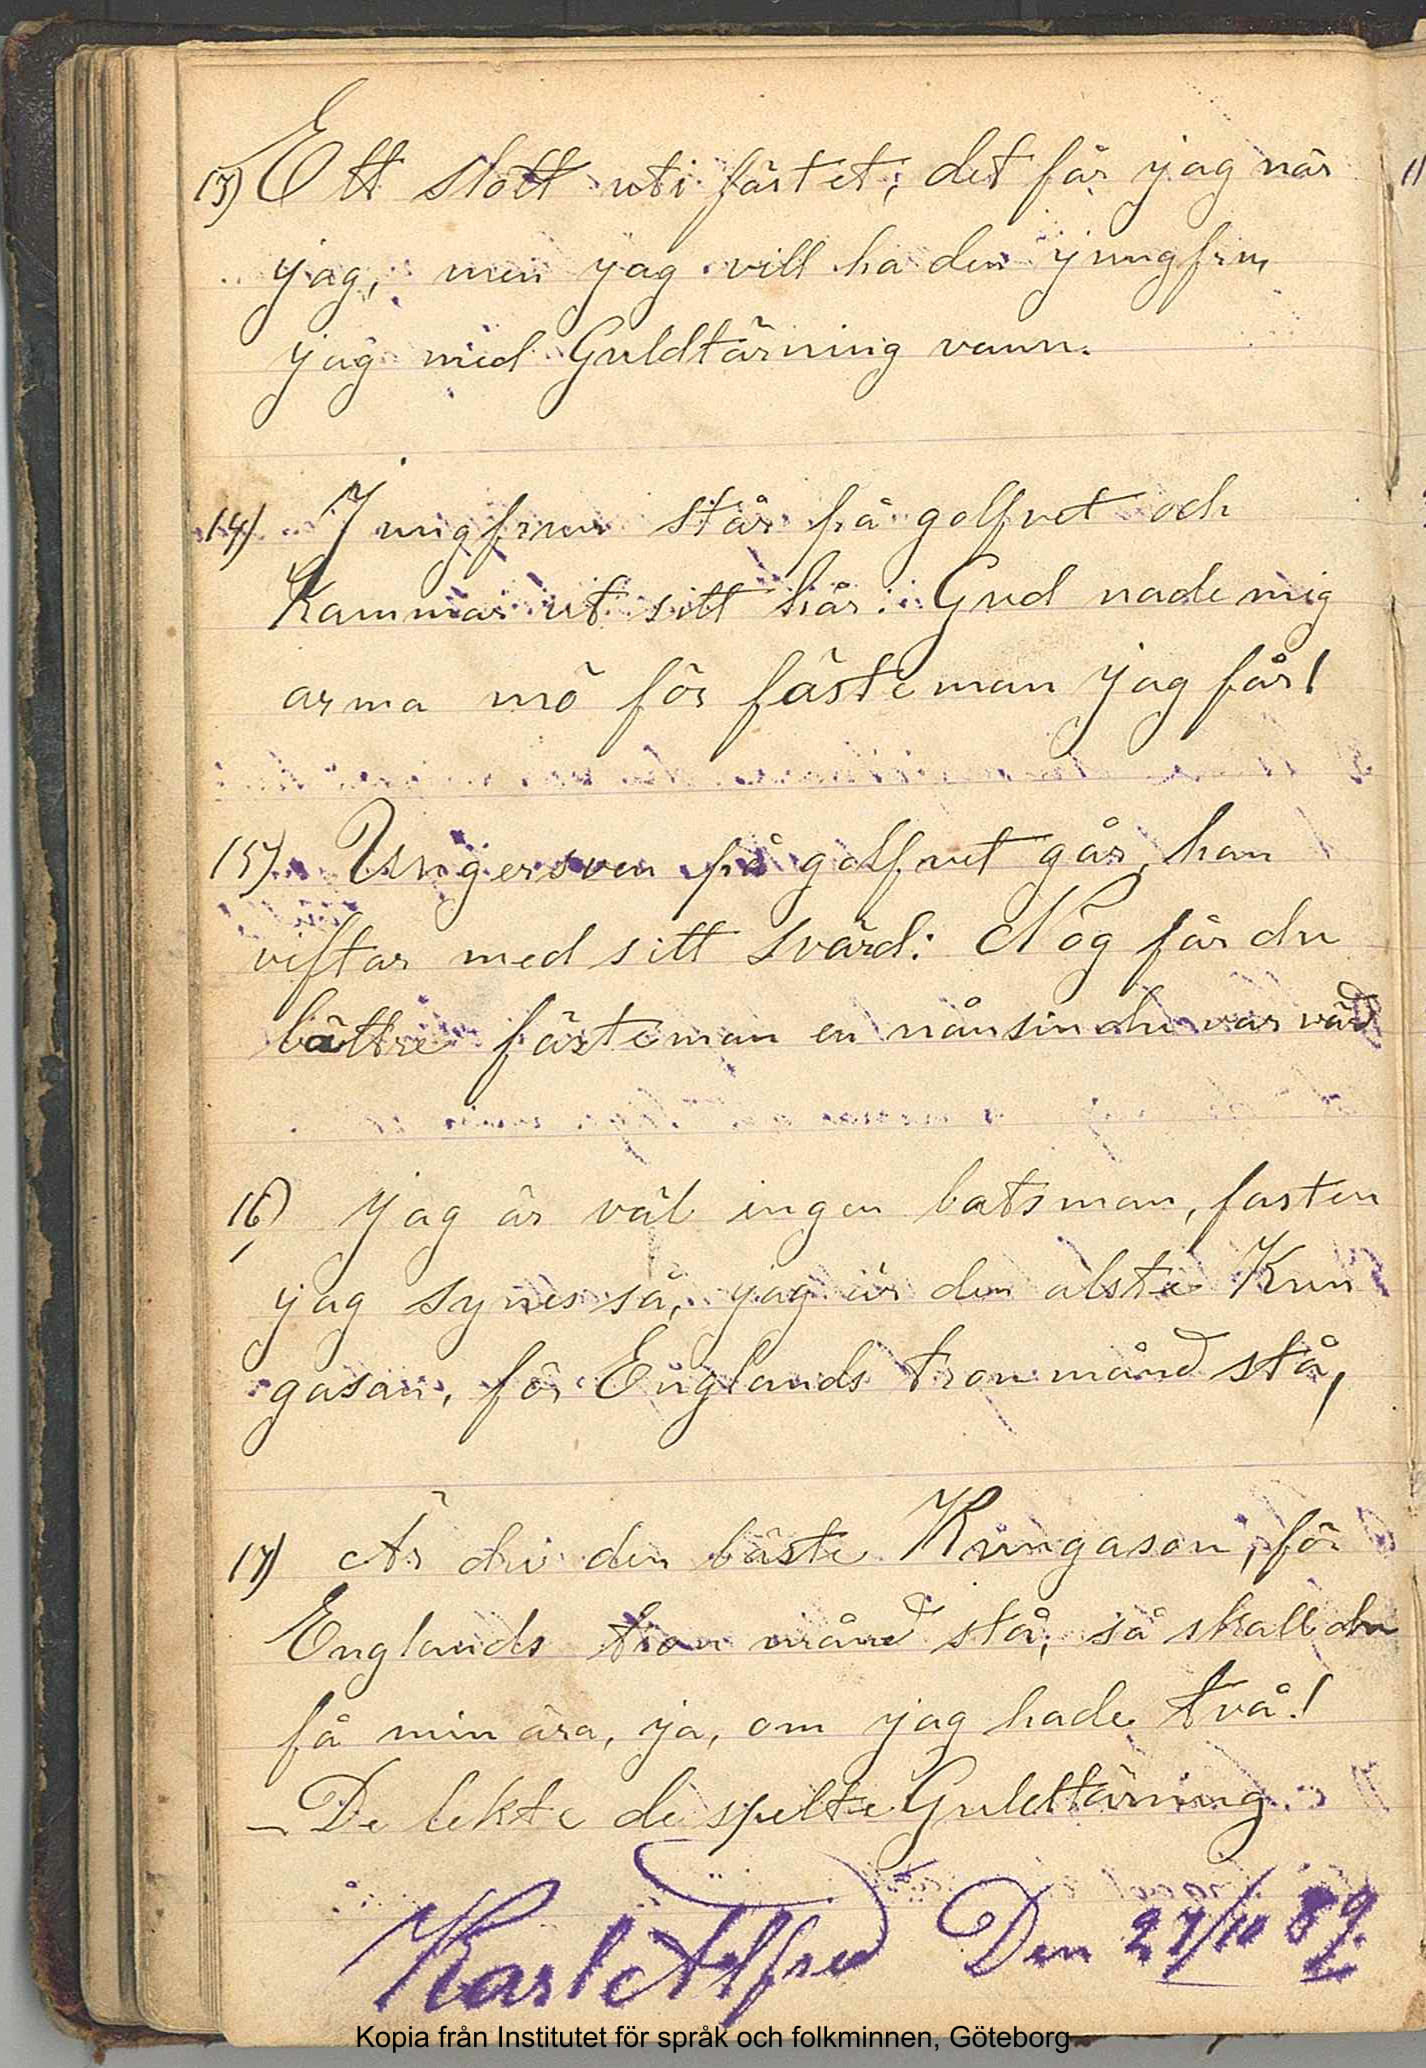 13) Ett slott uti fästet; det får jag när
jag, men jag vill ha den jungfru,
jag med Guldtärning vann.
14) Jungfrun står på golfvet och
Kammar ut sitt hår: Gud nade mig
arma mö för fästeman jag får!
15) Ungersven på golfvet går, han
viftar med sitt svärd: Nog får du
bättre fästeman en nånsin du var värd
16) Jag är väl ingen batsman, fasten
jag synes så, jag är den älste Kun
gason, för Englands tron månd stå,
17) Är du den bäste Kungason, för
Englands tron månd stå, så skall du
få min ära, ja, om jag hade två!
– De lekte de spelte Guldtärning
Karl Alfred Den 27/10 89.
Kopia från Institutet för språk och folkminnen, Göteborg